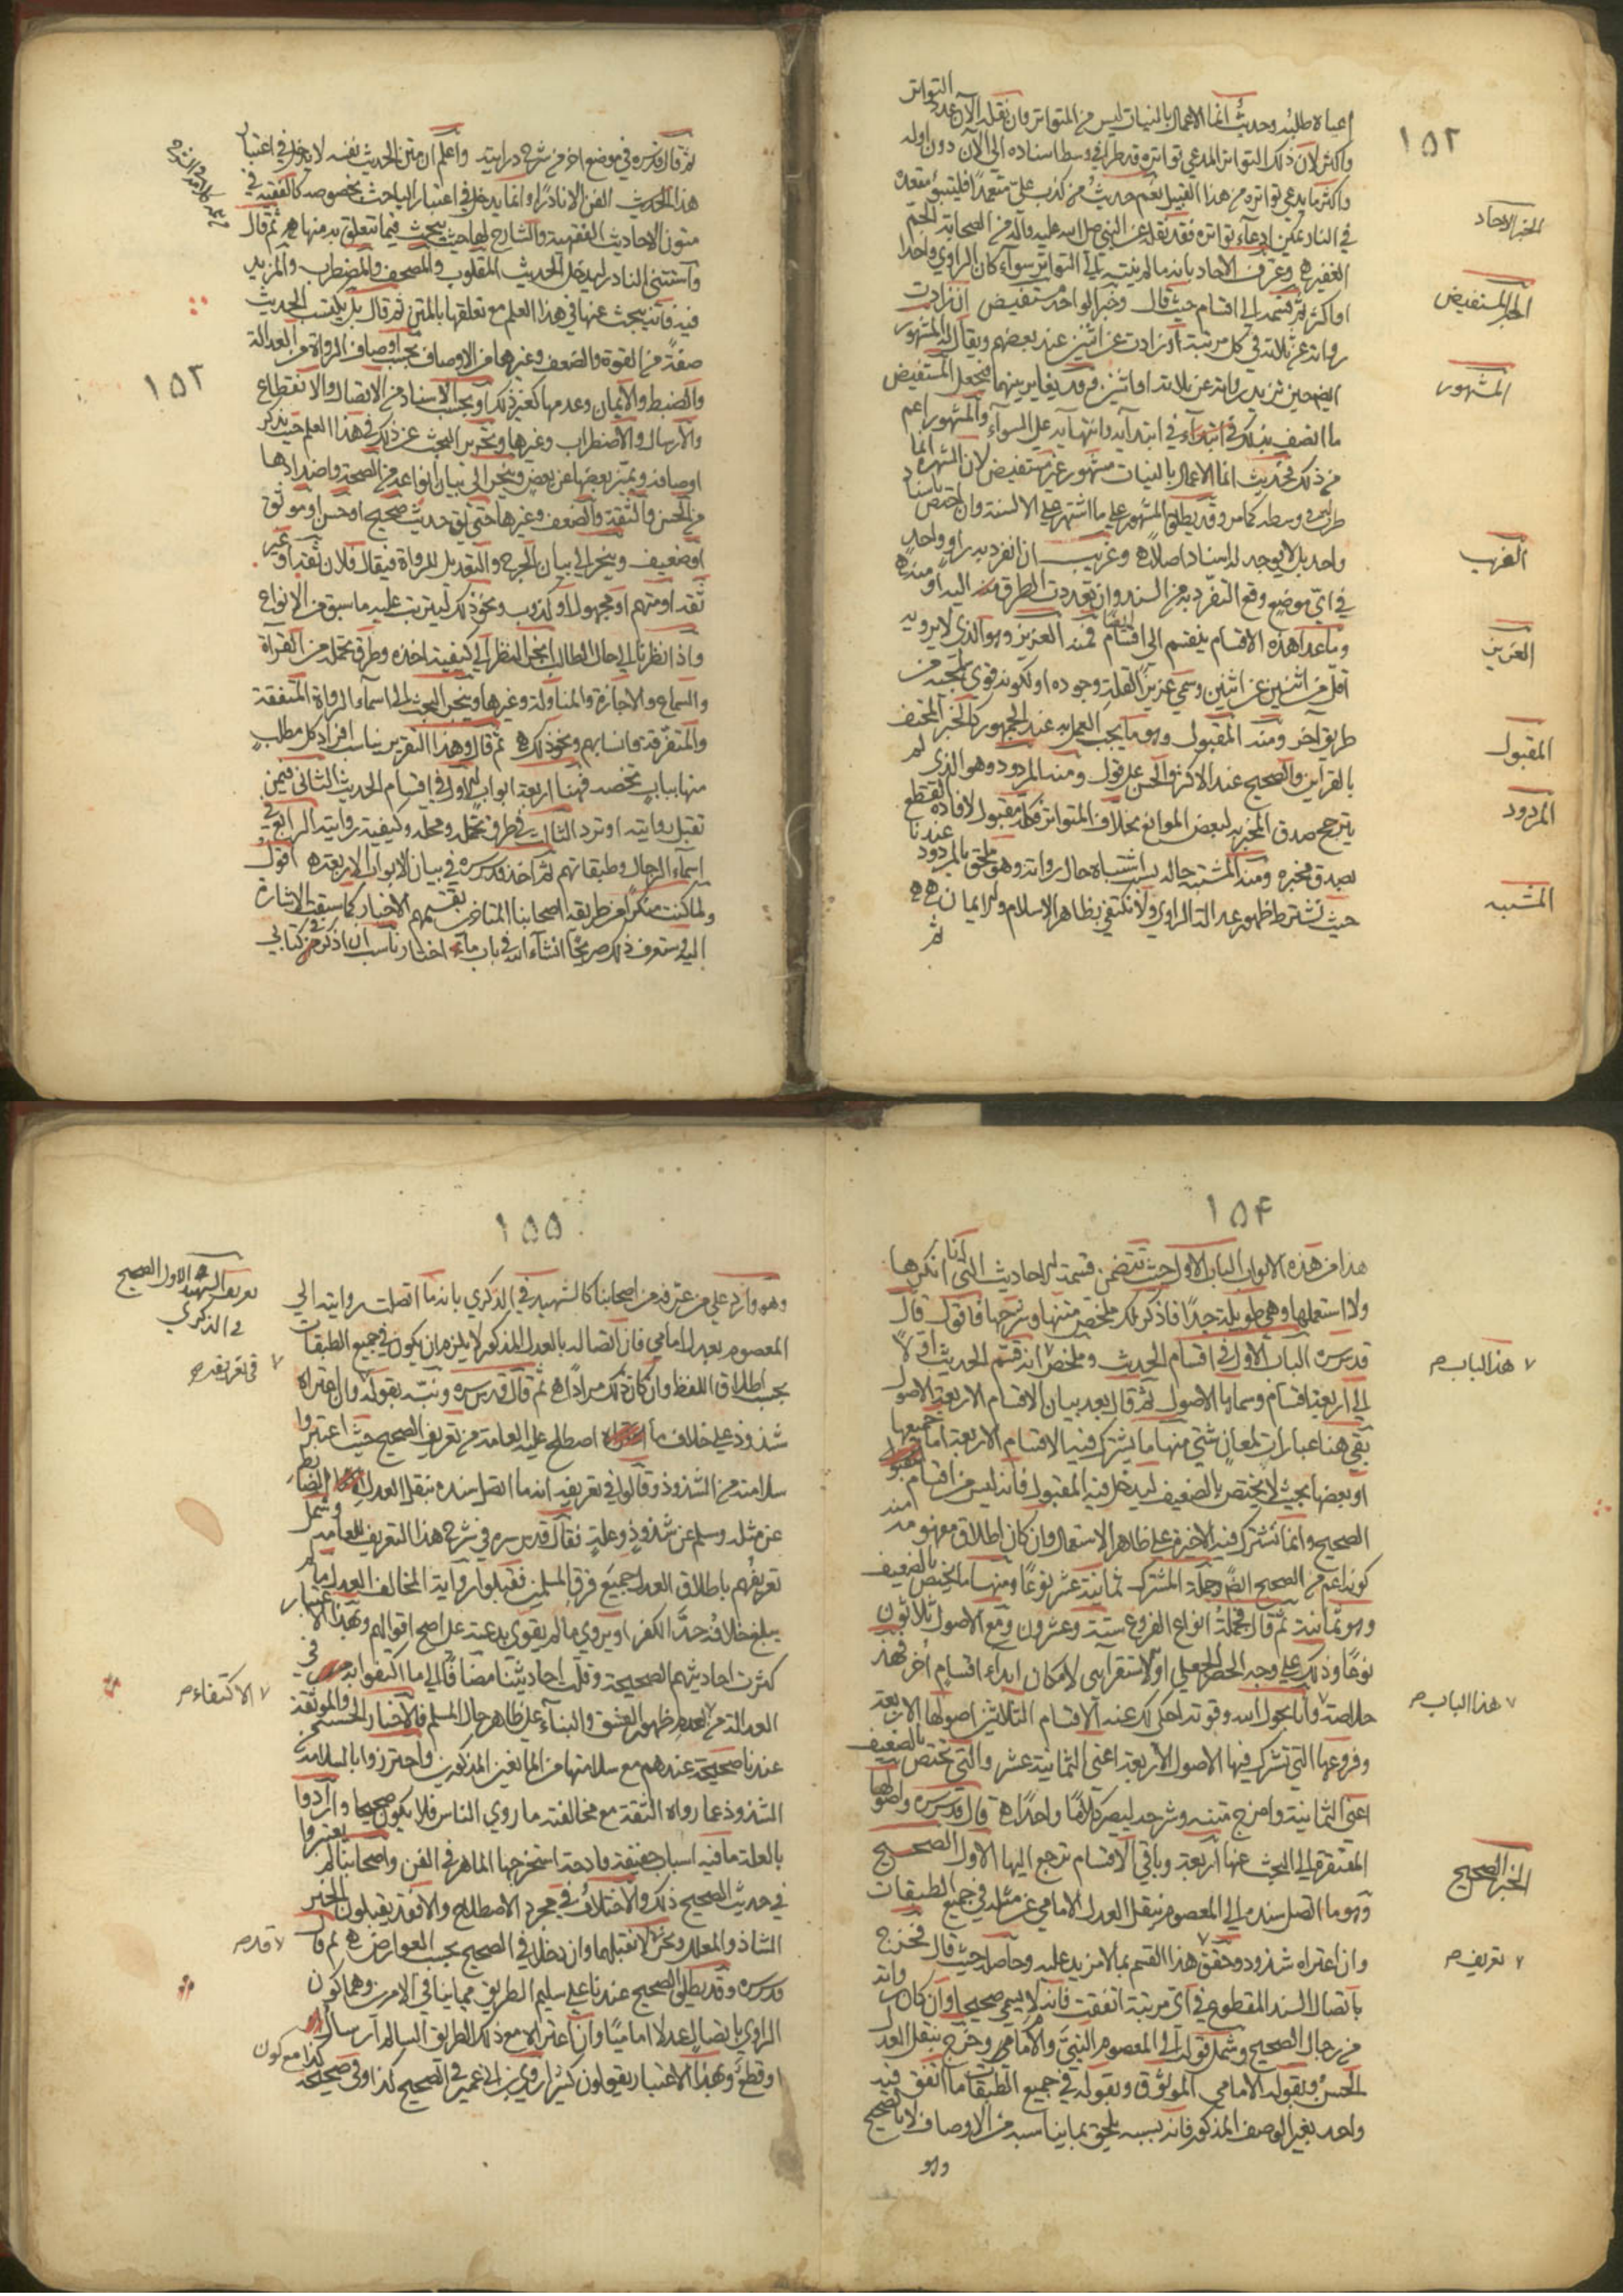 ١٥٢
التواتر
اعياه طلبه وحديث انما الاعمال بالنيات ليس من المتواتر وان نقله الآن عدد
واكثر لان ذلك التواتر المدعي تواتره قد طرأ في وسط اسناده الى الآن دون اوله
واكثر ما يدعي تواتره من هذا القبيل نعم حديث من كذب علي متعمدا فليتبوء مقعده
في النار يمكن ادعاء تواتره فقد نقله عن النبي صلى الله عليه وآله من الصحابة الجم
الغفير وعرف الآحاد بانه ما لم ينته الى التواتر سواء كان الراوي واحدا
او اكثر ثم قسمه الى اقسام حيث قال وخبر الواحد مستفيض ان زادت
رواته عن ثلاثة في كل مرتبة او زادت عن اثنين عند بعضهم ويقال له المشهور
ايضا حين تزيد رواته عن ثلاثة او اثنين وقد يغاير بينهما فيجعل المستفيض
ما اتصف بذلك في ابتدائه وانتهائه على السواء والمشهور اعم
من ذلك فحديث انما الاعمال بالنيات مشهور غير مستفيض لان الشهرة انما
طرأت في وسطه كما مر وقد يطلق المشهور على ما اشتهر على الالسنة وان اختص باسناد
واحد بل لا يوجد له اسناد اصلا وغريب ان انفرد به راو واحد
في اي موضع وقع التفرد به من السند وان تعددت الطرق منه اليه او منه
وما عدا هذه الاقسام ينقسم الى اقسام ايضا فمنه العزيز وهو الذي لا يرويه
اقل من اثنين عن اثنين وسمي عزيزا لقلة وجوده او لكونه قوي بمجيئه من
طريق آخر ومنه المقبول وهو ما يجب العمل به عند الجمهور كالخبر المحتف
بالقراين والصحيح عند الاكثر والحسن على قول ومنه المردود وهو الذي لم
يترجح صدق المخبر به لبعض الموانع بخلاف المتواتر فكله مقبول لافادته القطع
بصدق مخبره ومنه المشتبه حاله بسبب اشتباه حال رواته وهو ملحق بالمردود عندنا
حيث نشترط ظهور عدالة الراوي ولا نكتفي بظاهر الاسلام والايمان
ثم
الخبر الآحاد
الخبر المستفيض
المشهور
الغريب
العزيز
المقبول
المردود
المشتبه
١٥٣
ثم قال قدس سره في موضع اخر من شرح درايته واعلم ان متن الحديث نفسه لا يدخل في اعتبار
هذا الفن الا نادرا وانما يدخل في اعتبار الباحث بخصوصه كالفقيه في
متون الاحاديث الفقهية والشارح لها حيث يبحث فيما يتعلق به منها ثم قال
واستثنى النادر ليدخل الحديث المقلوب والمصحف والمضطرب والمزيد
فيه فانه يبحث عنها في هذا العلم مع تعلقها بالمتن ثم قال بل يكتسب الحديث
صفة من القوة والضعف وغيرهما من الاوصاف بحسب اوصاف الرواة من العدالة
والضبط والايمان وعدمها كغير ذلك او بحسب الاسناد من الاتصال والانقطاع
والارسال والاضطراب وغيرها وتحرير البحث عن ذلك في هذا العلم حيث يذكر
اوصافه ويميز بعضها عن بعض وينجر الى بيان انواعه من الصحة واضدادها
من الحسن والثقة والضعف وغيرها حتى يق حديث صحيح او حسن او موثوق
او ضعيف وينجر الى بيان الجرح والتعديل للرواة فيقال فلان ثقة او غير
ثقة او متهم او مجهول او كذوب ونحو ذلك ليترتب عليه ما سبق من الانواع
واذا نظرنا الى حال الطالب انجر النظر الى كيفية اخذه وطرق تحمله من القراءة
والسماع والاجازة والمناولة وغيرها وينجر البحث الى اسماء الرواة المتفقة
والمتفرقة وانسابهم ونحو ذلك ثم قال وهذا التقرير يناسب افراد كل مطلب
منها بباب يخصه فهنا اربعة ابواب الاول في اقسام الحديث الثاني فيمن
تقبل روايته او ترد الثالث في طرق تحمله ومحله وكيفية روايته الرابع في
اسماء الرجال وطبقاتهم ثم اخذ قدس سره في بيان الابواب الاربعة اقول
ولما كنت منكرا عن طريقة اصحابنا المتاخرين بتقسيمهم الاخبار كما سبقت الاشارة
اليه وستعرف ذلك صريحا انشاء الله في باب ناسب ان اذكر في كتابي
١٥٤
هذا من هذه الابواب الباب الاول حيث تتضمن قسمة الاحاديث التي انا انكرها
ولا استعملها وهي طويلة جدا فاذكر لك ملخص متنها وشرحها فاقول قال
قدس سره الباب الاول في اقسام الحديث وملخص ٧ انه قسم الحديث اولا
الى اربعة اقسام وسماها بالاصول ثم قال بعد بيان الاقسام الاربعة الاصول
بقي هنا عبارات لمعان شتى منها ما يشترك فيه الاقسام الاربعة اما جميعها
او بعضها بحيث لا يختص بالضعيف ليدخل فيه المقبول فانه ليس من اقسام
الصحيح وانما تشترك فيه الاخيرة على ظاهر الاستعمال وان كان اطلاق مفهومه
كونه اعم من الصحيح ايضا وجملة المشترك ثمانية عشر نوعا ومنها ما يختص بالضعيف
وهو ثمانية ثم قال فجملة انواع الفروع ستة وعشرون ومع الاصول ثلاثون
نوعا وذلك على وجه الحصر الجعلي او الاستقرايي لامكان ابداء اقسام اخر فهذه
خلاصة ٧ وانا بحول الله وقوته احكي لك عنه الاقسام الثلاثين اصولها الاربعة
وفروعها التي تشترك فيها الاصول الاربعة اعني الثمانية عشر والتي تختص بالضعيف
اعني الثمانية وامزج متنه وشرحه ليصير كلاما واحدا قال قدس سره واصولها
المفتقرة الى البحث عنها اربعة وباقي الاقسام ترجع اليها الاول الصحيح
وهو ما اتصل سنده الى المعصوم بنقل العدل الامامي عن مثله في جميع الطبقات
وان اعتراه شذوذ وحقق ٧ هذا القسم بما لا مزيد عليه وحاصله حيث قال فخرج
باتصال السند المقطوع في اي مرتبة اتفقت فانه لا يسمى صحيحا وان كان رواته
من رجال الصحيح وشمل قوله الى المعصوم النبي والامام وخرج بنقل العدل
الحسن وبقوله الامامي الموثق وبقوله في جميع الطبقات ما اتفق فيه
واحد بغير الوصف المذكور فانه بسببه يلحق بما يناسبه من الاوصاف لا بالصحيح
وهو
٧ هذا الباب ص
٧ هذا الباب ص
الخبر الصحيح
٧ تعريف ص
١٥٥
وهو وارد على من عرفه من اصحابنا كالشهيد في الذكرى بانه ما اتصلت روايته الى
المعصوم بعدل امامي فان اتصاله بالعدل المذكور لا يلزم ان يكون في جميع الطبقات
بحسب اطلاق اللفظ وان كان ذلك مرادا ثم قال قدس سره ونبه بقوله ٧ وان اعتراه
شذوذ على خلاف ما اصطلح عليه العامة من تعريف الصحيح حيث اعتبروا
سلامته من الشذوذ وقالوا في تعريفه انه ما اتصل سنده بنقل العدل الضابط
عن مثله وسلم عن شذوذ وعلة فقال قدس سره في شرح هذا التعريف للعامة وشمل
تعريفهم باطلاق العدل جميع فرق المسلمين فقبلوا رواية المخالف العدل ما لم
يبلغ خلافه حد الكفر او يروي ما لم يقوي بدعته على اصح اقوالهم وبهذا الاعتبار
كثرت احاديثهم الصحيحة وقلت احاديثنا مضافا الى ما اكتفوا به في
العدالة من ٧ بعدم ظهور الفسق والبناء على ظاهر حال المسلم فالاخبار الحسنة والموثقة
عندنا صحيحة عندهم مع سلامتها من المانعين المذكورين واحترزوا بالسلامة من
الشذوذ عما رواه الثقة مع مخالفته ما روى الناس فلا يكون صحيحا وارادوا
بالعلة ما فيه اسباب خفيفة قادحة استخرجها الماهر في الفن واصحابنا لم يعتبروا
في حديث الصحيح ذلك والاختلاف في مجرد الاصطلاح والا فقد يقبلون الخبر
الشاذ والمعلل ونحن ٧ لا نقبلهما وان دخلا في الصحيح بحسب العوارض ثم قال
قدس سره وقد يطلق الصحيح عندنا على سليم الطريق مما ينافي الامرين وهما كون
الراوي باتصال عدلا اماميا وان اعترى مع ذلك الطريق السالم ارسال
او قطع وبهذا الاعتبار يقولون كثيرا روى ابن ابي عمير في الصحيح كذا وفي صحيحه
كذا مع كون
تعريف الشهيد الاول الصحيح
في الذكرى
٧ في تعريفه ص
٧ الاكتفاء ص
٧ قد ص